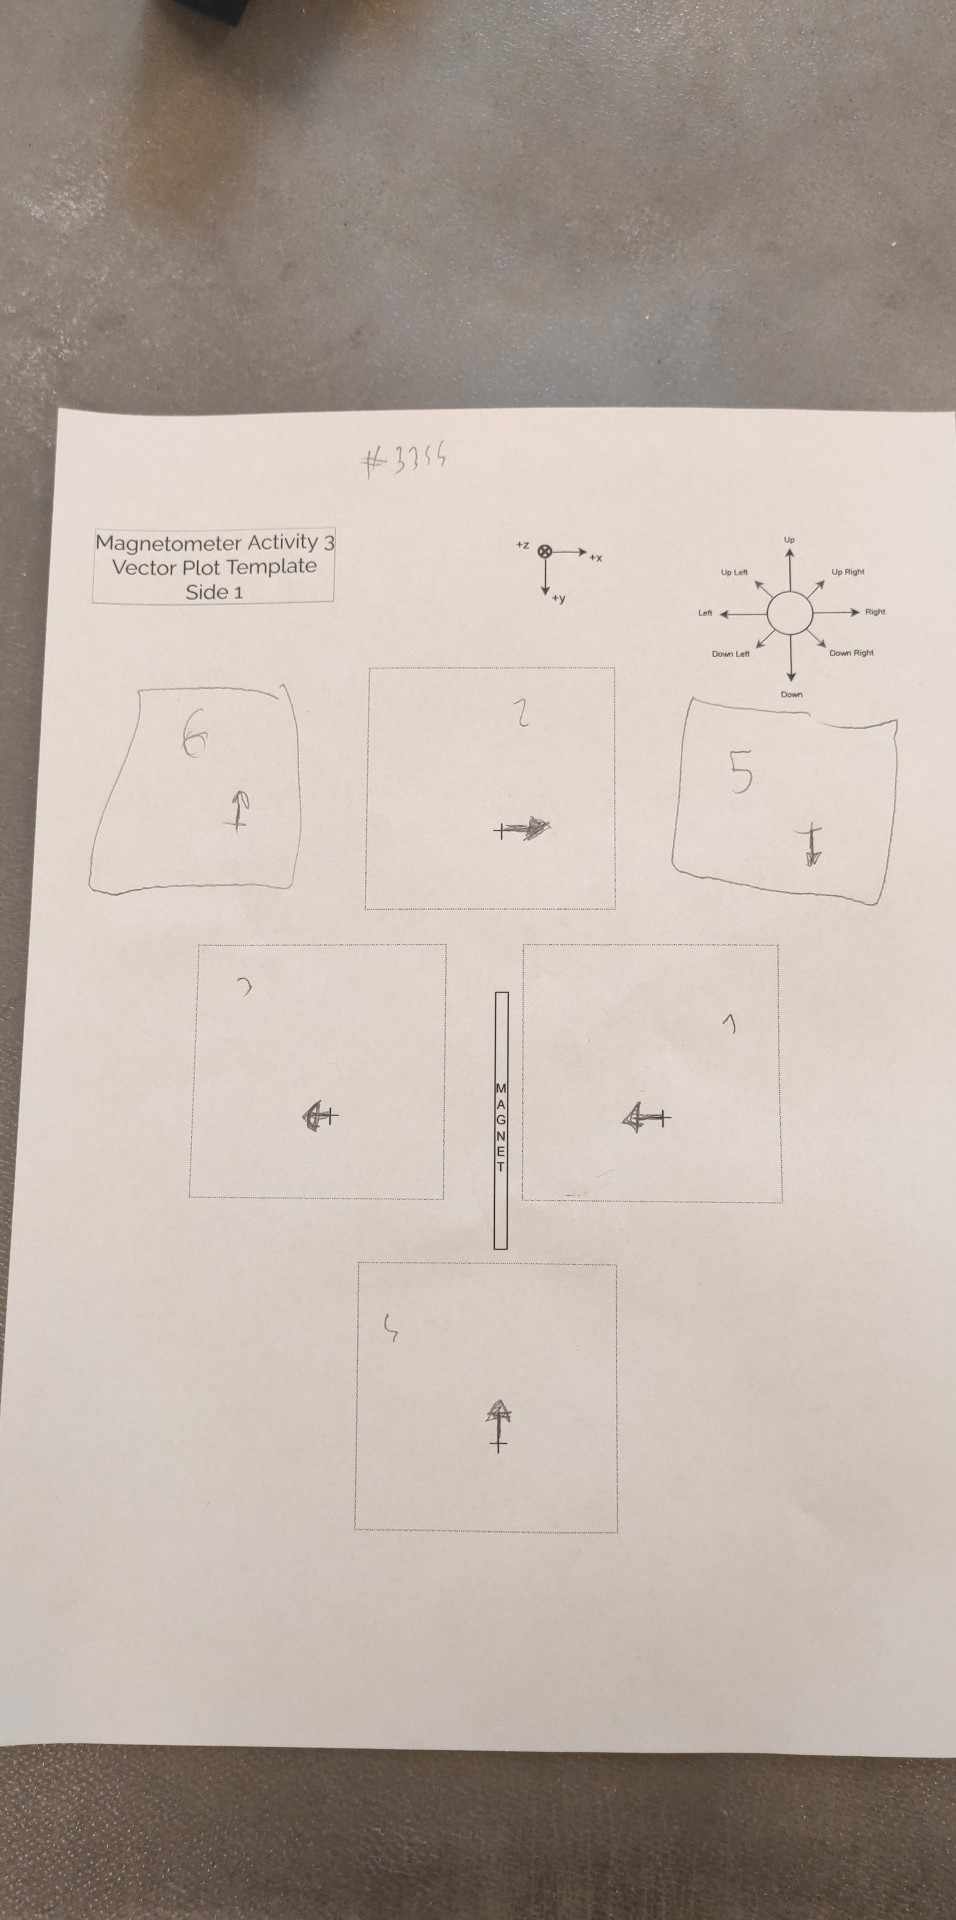 #3355
Magnetometer Activity 3
Vector Plot Template
Side 1
+z
+x
+y
Up
Up Left
Up Right
Left
Right
Down Left
Down Right
Down
6
2
5
1
MAGNET